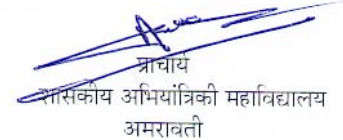 प्राचार्य
शासकीय अभियांत्रिकी महाविद्यालय
अमरावती